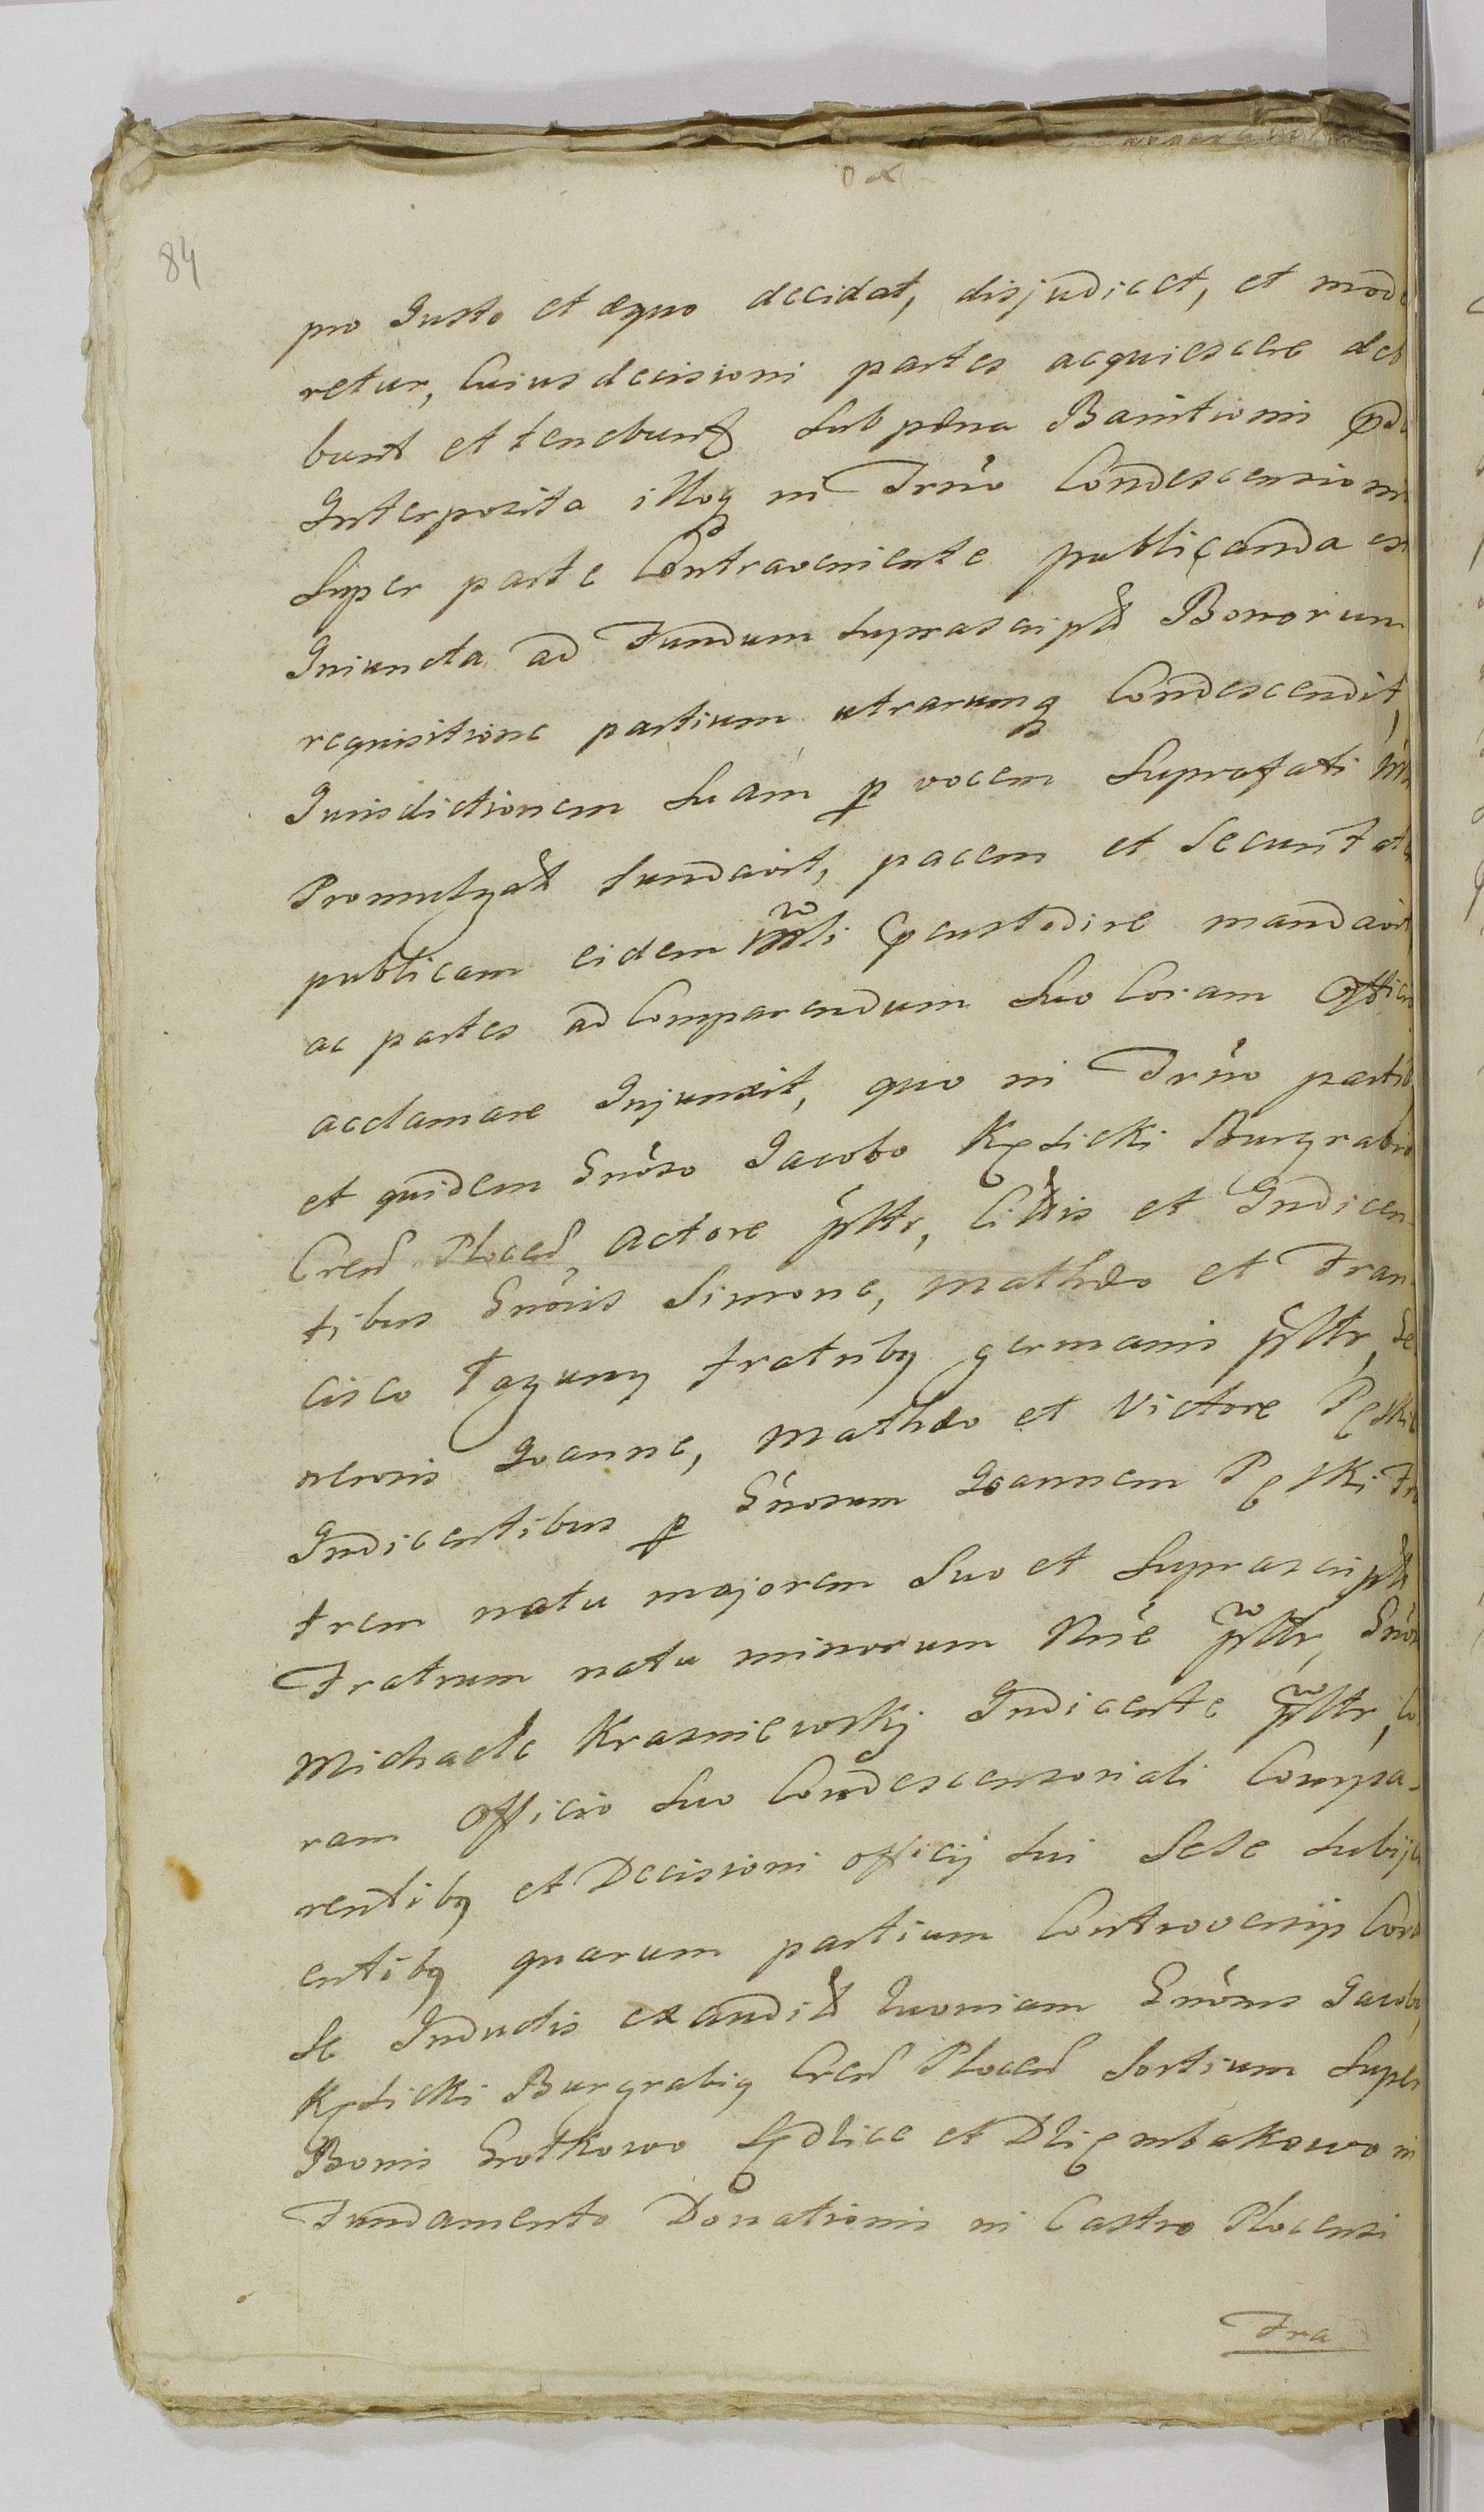 84
pro Justo et æquo decidat, disjudicet, et mode
retur, Cuius decisioni partes acquiescere deb
bunt et tenebunt Sub pæna Banitionis
Interposita illoq in Trño Condescensionis
Super parte Contraveniente publicanda es
Iniuncta ad Fundum suprascipt Bonorum
requisitione partium utrarumq Condescendit,
Jurisdictionem Suam p vocem Suprafati
Promulgat fundavit, pacem et Securitat
publicam eidem custodire mandavit
ac partes ad Comparendum Suo Coram Officio
acclamare Injunxit, quo in Trño partib
et quidem Gñoso Jacobo Kęsicki Burgrabio
Cren Plocen, Actore psltr, Cittis et Indicen-
tibus Gñosis Simone, Mathæo et Fran
cisco Łazuny Fratriby germanis psltr, Ge
nerosis Joanne, Mathæo et Victore
Indicentibus p Gñosum Joannem Pęski Fra
trem natu majorem Suo et Suprascipt
Fratrum natu minorum Nñe psltr, Gños
Michaele Krasniewskj Indicente psltr, Co
ram Officio Suo Condescensoriali Compa-
rentiby et Decisioni officij Sui Sese Subijci
entiby quarum partium Controversijs Cora
Se Inductis exaudit Quoniam Gñosus Jacob
Kęsicki Burgrabig Cren Plocen Sortium Super
Bonis Grotkowo Sędlice et Dziembakowo in
Fundamento Donationis in Castro Plocensi
Fra